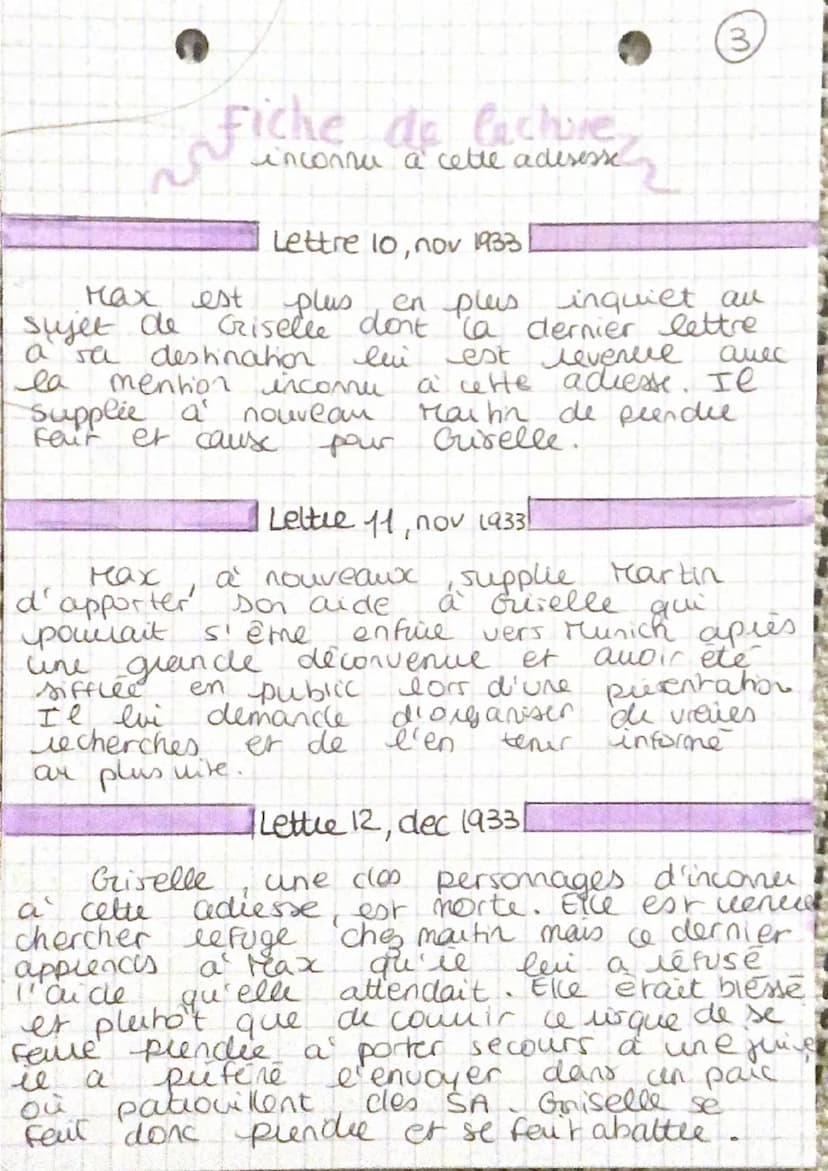 3
Fiche de lecture
inconnu à cette adresse
Lettre 10, nov 1933
Max est plus en plus inquiet au
sujet de Griselle dont la dernier lettre
à sa destination lui est revenue avec
la mention inconnu à cette adresse. Il
supplie à nouveau Martin de prendre
fait et cause pour Griselle.
Lettre 11, nov 1933
Max, à nouveaux, supplie Martin
d'apporter son aide à Griselle qui
pourrait s'être enfuie vers Munich après
une grande déconvenue et avoir été
sifflée en public lors d'une présentation
Il lui demande d'organiser de vraies
recherches et de l'en tenir informé
au plus vite.
Lettre 12, dec 1933
Griselle, une des personnages d'inconnu
à cette adresse, est morte. Elle est venue
chercher refuge chez martin mais ce dernier
apprends à Max qu'il lui a refusé
l'aide qu'elle attendait. Elle était blessé
et plutôt que de courir le risque de se
faire prendre à porter secours à une juive
il a préféré l'envoyer dans un parc
où patrouillent des SA. Griselle se
fait donc prendre et se fait abattre.